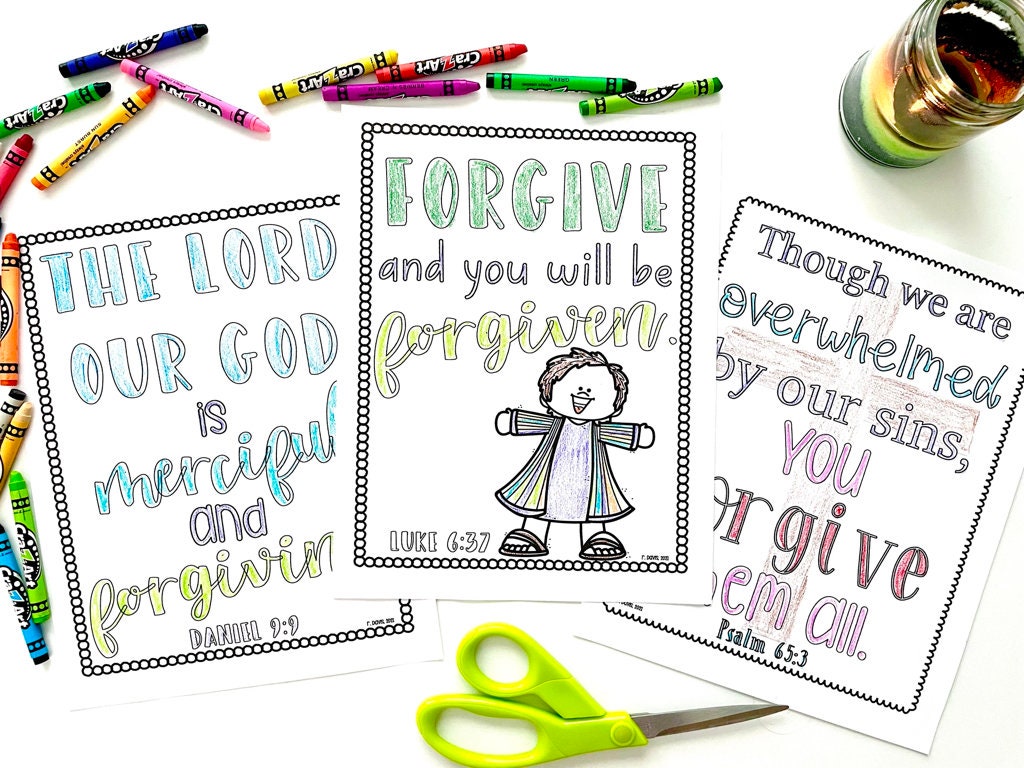 CraZArt
CraZArt
CraZArt
CraZArt
SUN BURST
CraZArt
GREEN
THE LORD
OUR GOD
is
merciful
and
forgivin
DANIEL 9:9
FORGIVE
and you will be
forgiven.
LUKE 6:37
Though we are
overwhelmed
by our sins,
YOU
orgive
em all.
Psalm 65:3